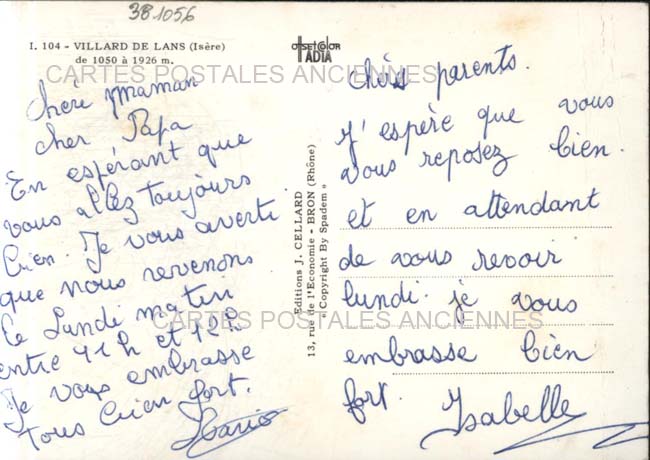 381056
I. 104 - VILLARD DE LANS (Isère)
de 1050 à 1926 m.
OFFSETCOLOR
IADIA
CARTES POSTALES ANCIENNES
chère Maman
cher Papa
En espérant que
vous allez toujours
bien. Je vous averti
que nous revenons
le Lundi matin
entre 11h et 12h
Je vous embrasse
tous bien fort.
Editions J. CELLARD
13, rue de l'Economie - BRON (Rhône)
« Copyright By Spadem »
chers parents.
J'espère que vous
vous reposez bien.
et en attendant
de vous revoir
lundi. je vous
embrasse bien
fort. Isabelle
CARTES POSTALES ANCIENNES